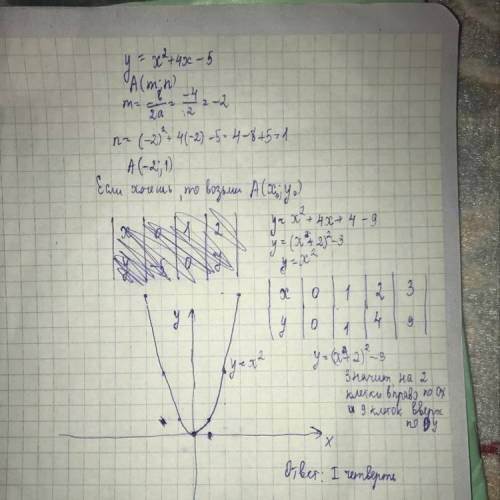 y = x²+4x-5
A(m; n)
m = в/2a = -4/2 = -2
n = (-2)²+4(-2)-5=4-8+5=1
A(-2; 1)
Если хочешь, то возьми A(x₀; y₀)
y = x²+4x+4-9
y=(x+2)²-3
y=x²
x 0 1 2 3
y 0 1 4 9
y=(x+2)²-3
Значит на 2
клетки вправо по Ox
и 9 клеток вверх
по Oy
y
y=x²
x
Ответ: I четверть